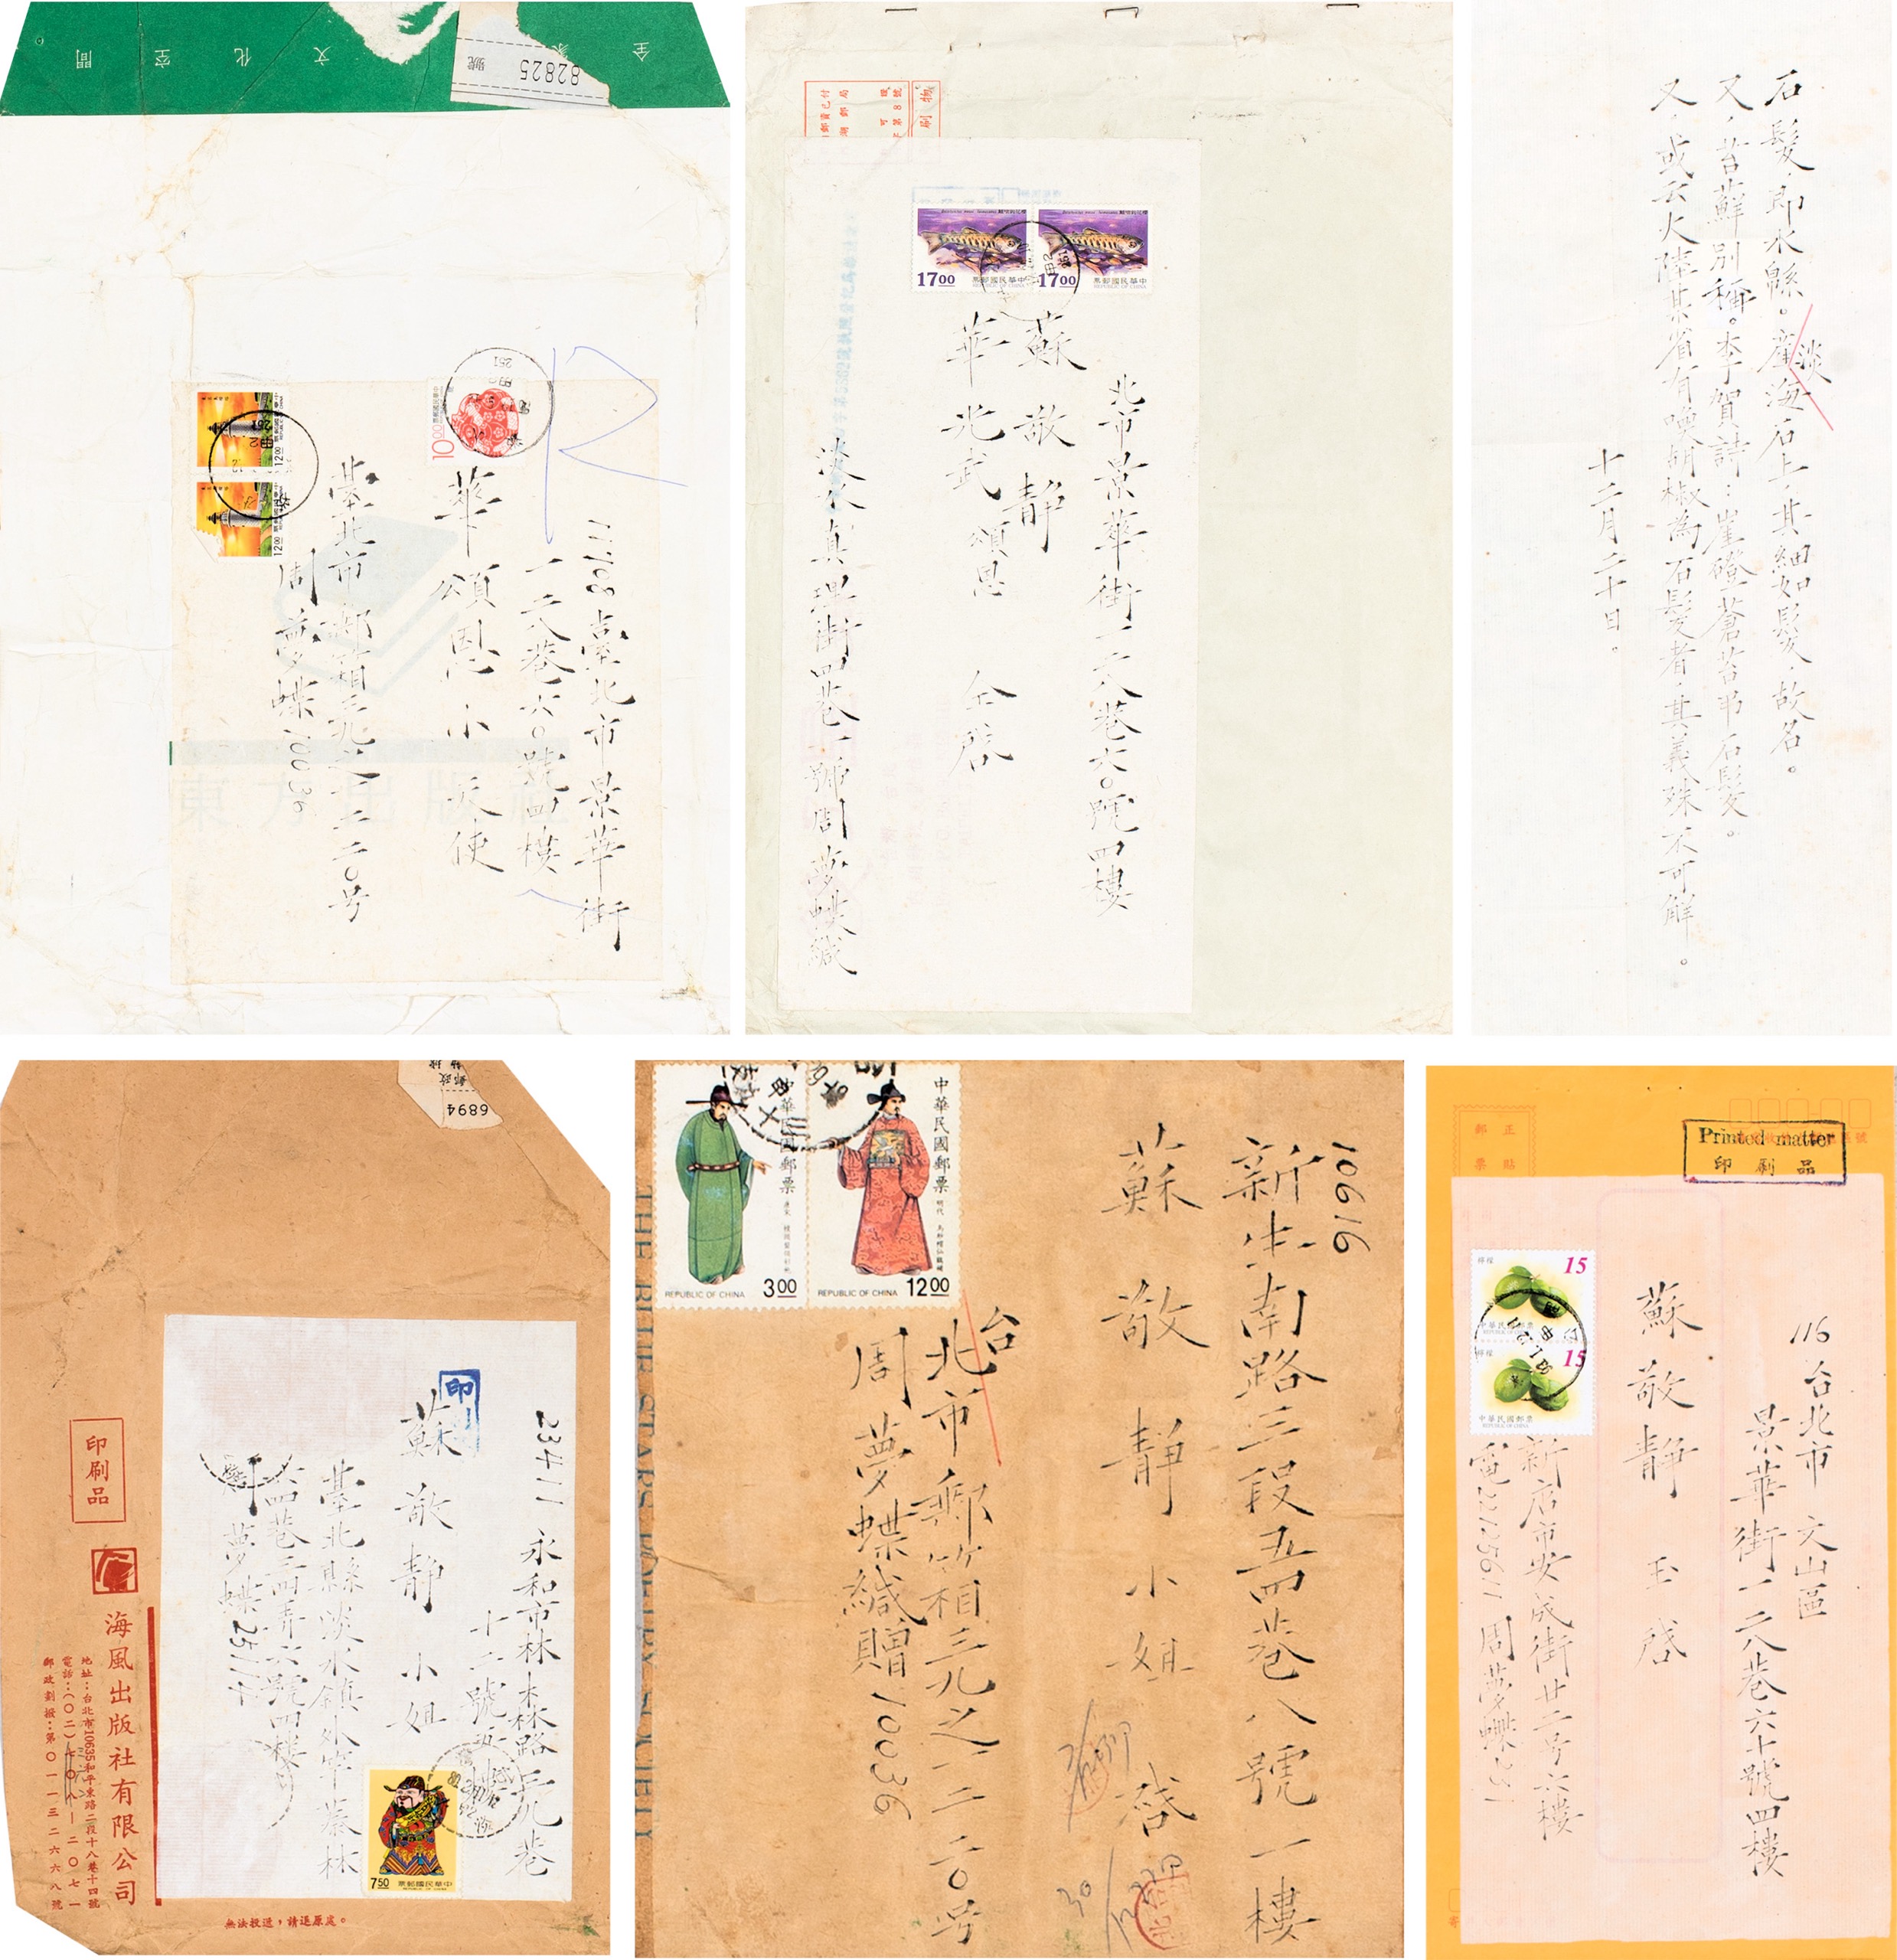 全家文化空間
82825號
中華民國郵票
10.00
12.00
12.00
11708臺北市景華街
一二八巷六〇號四樓
華頌恩小天使
臺北市郵箱三九之一二二〇号
周夢蝶10036
東方出版社
印刷物
17.00
中華民國郵票
REPUBLIC OF CHINA
17.00
中華民國郵票
REPUBLIC OF CHINA
北市景華街一二八巷六〇號四樓
蘇敬靜
華兆武頌恩 仝啓
淡水真理街四巷一號周夢蝶緘
石髮,即水緜。產淡海石上,其細如髮,故名。
又,苔蘚別稱。李賀詩:崖磴蒼苔弔石髮。
又,或云大陸某省有喚胡椒為石髮者,其義殊不可解。
十二月二十日。
6894
印刷品
海風出版社有限公司
地址:台北市10635和平東路二段十八巷十四號
郵政劃撥:第〇一一三二六六八號
無法投遞,請退原處。
23411 永和市林森路三九巷
十二號五樓
蘇敬靜小姐
臺北縣淡水鎮外竿蓁林
夢蝶
7.50
中華民國郵票
中華民國郵票
REPUBLIC OF CHINA
3.00
中華民國郵票
REPUBLIC OF CHINA
12.00
THE BLUE STARS POETRY SOCIETY
10616
新生南路三段五四巷八號一樓
蘇敬靜小姐 啓
台北市郵箱三九之一二二〇号
周夢蝶緘贈10036
Printed matter
印刷品
正貼郵票
15
中華民國郵票
15
中華民國郵票
116台北市文山區
景華街一二八巷六十號四樓
蘇敬靜 玉啓
新店市安成街廿二号六樓
電22125611周夢蝶231